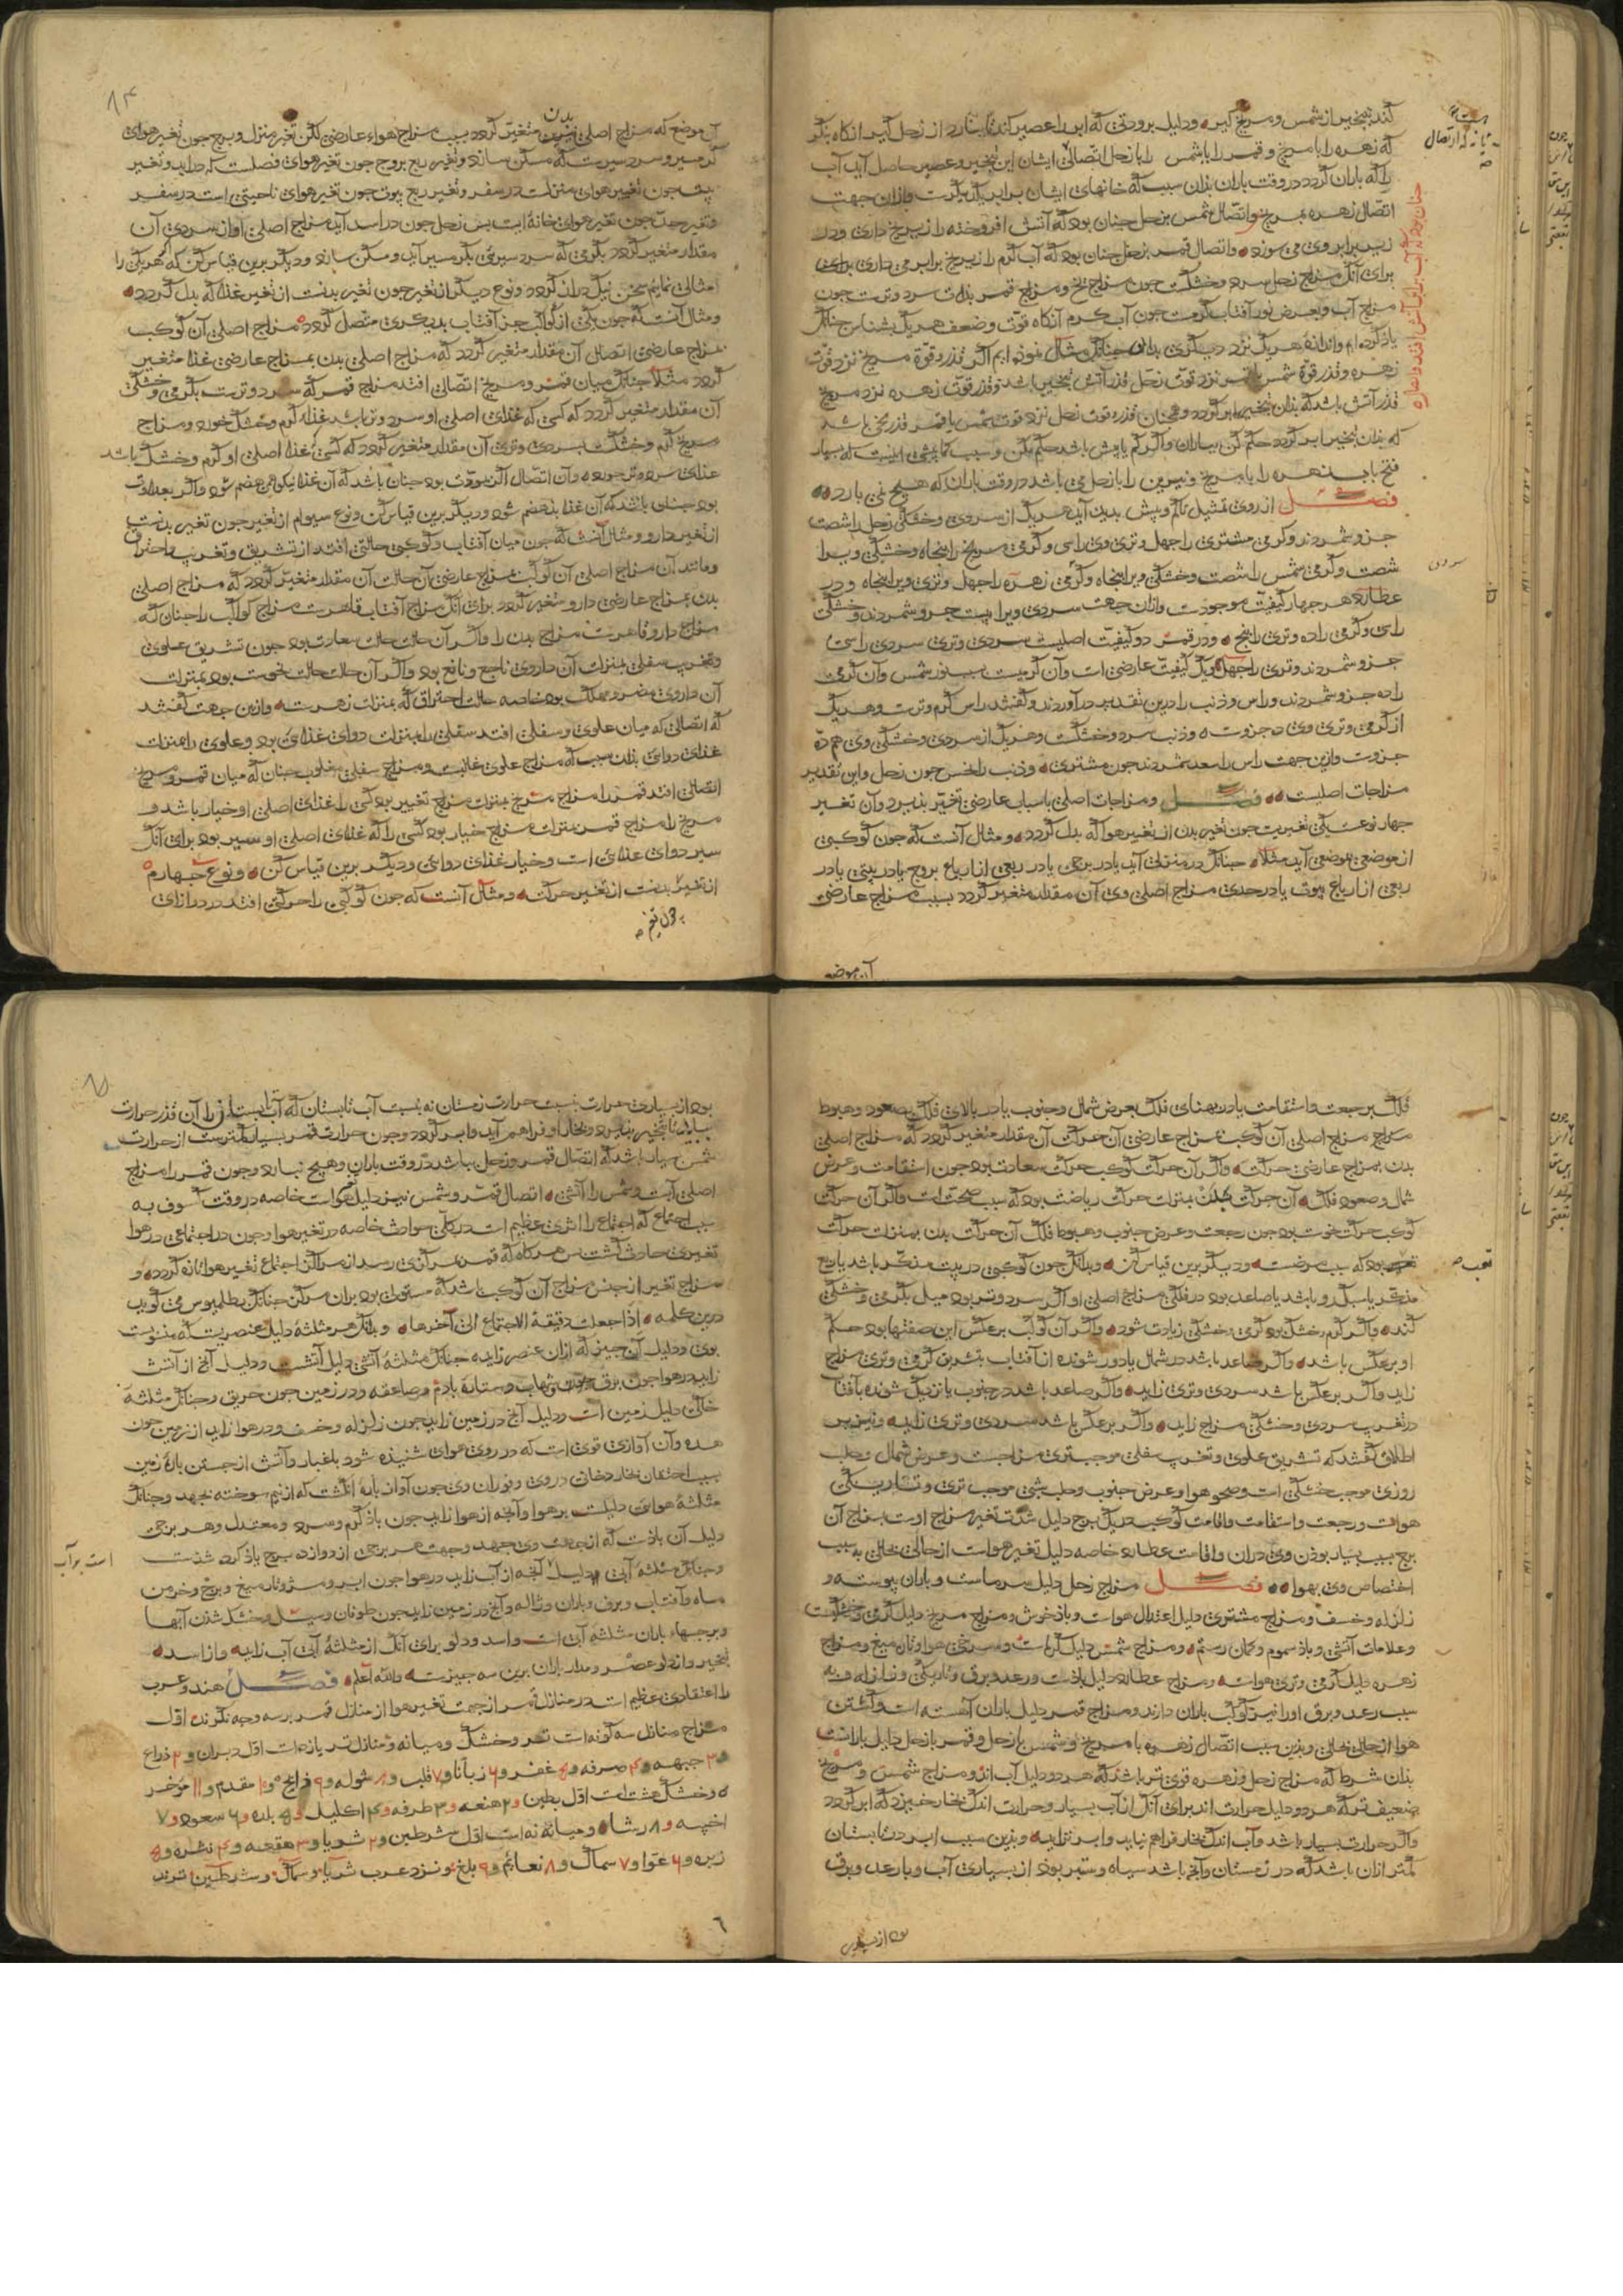 کند تبخیر از شمس و مریخ گیر و دلیل برودتی که ابر را عصیر کند تا ببارد از زحل گیر انکاه بنگر
که زهره را با مریخ و قمر را با شمس را با زحل اتصالی ایشان این تبخیر و عصیر حاصل آید آب
را که باران کردد در وقت باران بذان سبب که خانهای ایشان برابر یکدیگرست و ازان جهت
اتصال زهره بمریخ و اتصال شمس بزحل چنان بود که آتش افروخته را زیر یخ داری و در
زیر برابر وی می سوزد و اتصال قمر بزحل چنان بود که آب کرم را زیر یخ برابر می داری برای
برای آنک مزاج زحل سرد و خشکست چون مزاج یخ و مزاج قمر بذات سرد و ترست چون
مزاج آب و بعرض نور آفتاب کرمست چون آب کرم آنکاه قوت و ضعف هر یک بشناس چنانک
یاذ کرده ایم و اندازه هر یک نزد دیکری بدان چنانک مثال نموذه ایم اکر قدر قوة مریخ نزد قوت
زهره و قدر قوة شمس نزد قوت زحل قدر آتش تبخیر باشد و قدر قوت زهره نزد مریخ
قدر آتش باشد که بذان تبخیر ابر کردد و همچنان قدر قوت زحل نزد قوت شمس یا قمر قدر یخی باشد
که بذان تبخیر ابر کردد حکم کن بباران و اکر کم یا بیش باشد حکم مکن و سبب کمابیشی اینست که بسیار
فتح باب زهره را با مریخ و نیرین را با زحل می باشد در وقت باران که هیچ نمی بارد
فصل از روی تمثیل تا کم و بیش بدید آید هر یک از سردی و خشکی زحل را شصت
جزو شمردند و کرمی مشتری را چهل و تری وی را سی و کرمی مریخ را پنجاه و خشکی ویرا
شصت و کرمی شمس را شصت و خشکی ویرا پنجاه و کرمی زهره را چهل و تری ویرا پنجاه و در
عطارد هر چهار کیفیت موجودست و ازان جهت سردی ویرا بیست جزو شمردند و خشکی
را سی و کرمی را ده و تری را پنج و در قمر دو کیفیت اصلیست سردی و تری سردی را سی
جزو شمردند و تری را چهل و یک کیفیت عارضی است و آن کرمیست بسبب نور شمس و آن کرمی
را ده جزو شمردند و راس و ذنب را درین تقدیر در آوردند و کفتند راس کرم و ترست و هر یک
از کرمی و تری وی ده جزوست و ذنب سرد و خشکست و هر یک از سردی و خشکی وی هم ده
جزوست و ازین جهت راس را سعد شمردند چون مشتری و ذنب را نحس چون زحل و این تقدیر
مزاجات اصلیست فصل و مزاجات اصلی باسباب عارضی تغیر پذیرد و آن تغیر
چهار نوعست یکی تغیریست چون تغیر بدن از تغیر هوا که بدل کردد و مثال آنست که چون کوکبی
از موضعی بموضعی آید مثلا چنانک در منزلی آید یا در برجی یا در ربعی از ارباع بروج یا در بیتی یا در
ربعی از ارباع بیوت یا در حدی مزاج اصلی وی آن مقدار متغیر کردد بسبب مزاج عارضی
آن موضع
چنان بود که آب برابر آتش
است
آن موضع که مزاج اصلی بدن متغیر کردد بسبب مزاج هواء عارضی لکن تغیر منزل و برج چون تغیر هوای
کرمسیر و سردسیرست که مسکن سازد و تغیر ربع بروج چون تغیر هوای فصلست که در آید و تغیر
بیت چون تغییر هوای منزلست در سفر و تغیر ربع بیوت چون تغیر هوای ناحیتی است در سفر
و تغیر حد چون تغیر هوای خانه است پس زحل چون در اسد آید مزاج اصلی او از سردی آن
مقدار متغیر کردد بکرمی که سردسیری بکرمسیر آید و مسکن سازد و دیکر برین قیاس کن که اکر هر یکی را
مثالی نمایم سخن نیک دراز کردد و نوع دیکر از تغیر چون تغیر بدنست از تغیر غذا که بدل کردد
و مثال آنست که چون یکی از کواکب جز آفتاب بدیکری متصل کردد مزاج اصلی آن کوکب
بمزاج عارضی اتصال آن مقدار متغیر کردد که مزاج اصلی بدن بمزاج عارضی غذا متغیر
کردد مثلا چنانک میان قمر و مریخ اتصالی افتد مزاج قمر که سرد و ترست بکرمی و خشکی
آن مقدار متغیر کردد که کسی که غذای اصلی او سرد و تر باشد غذاء کرم و خشک خورد و مزاج
مریخ کرم و خشکست بسردی و تری آن مقدار متغیر کردد که کسی غذا اصلی او کرم و خشک باشد
غذای سرد و تر خورد و آن اتصال اکر مودت بود چنان باشد که آن غذا نیکو هضم شود و اکر بعداوت
بود چنان باشد که آن غذا بد هضم شود و دیکر برین قیاس کن و نوع سیوم از تغیر چون تغیر بدنست
از تغیر دارو و مثال آنست که چون میان آفتاب و کوکبی حالتی افتد از تشریق و تغریب و احتراق
و مانند آن مزاج اصلی آن کوکب بمزاج عارضی آن حالت آن مقدار متغیر کردد که مزاج اصلی
بدن بمزاج عارضی دارو متغیر کردد برای آنک مزاج آفتاب قاهرست مزاج کواکب را چنان که
مزاج دارو قاهرست مزاج بدن را و اکر آن حالت حالت سعادت بود چون تشریق علوی
و تغریب سفلی بمنزلت آن داروی ناجع و نافع بود و اکر آن حالت حالت نحوست بود بمنزلت
آن داروی مضر و مهلک بود خاصه حالت احتراق که بمنزلت زهرست و ازین جهت کفتند
که اتصالی که میان علوی و سفلی افتد سفلی را بمنزلت دوای غذائی بود و علوی را بمنزلت
غذای دوائی بذان سبب که مزاج علوی غالبست و مزاج سفلی مغلوب چنان که میان قمر و مریخ
اتصالی افتد قمر را مزاج مریخ بمنزلت مزاج تغییر بود کسی را غذای اصلی او خیار باشد و
مریخ را مزاج قمر بمنزلت مزاج خیار بود کسی را که غذای اصلی او سیر بود برای آنک
سیر دوای غذائی است و خیار غذای دوائی و دیکر برین قیاس کن و نوع چهارم
از تغیر بدنست از تغیر حرکت و مثال آنست که چون کوکبی را حرکتی افتد در درازای
فلک برجعت و استقامت یا در پهنای فلک بعرض شمال و جنوب یا در بالای فلک بصعود و هبوط
مزاج اصلی آن کوکب بمزاج عارضی آن حرکت آن مقدار متغیر کردد که مزاج اصلی
بدن بمزاج عارضی حرکت و اکر آن حرکت کوکب حرکت سعادت بود چون استقامت و عرض
شمال و صعود فلک آن حرکت بمنزلت حرکت ریاضت بود که سبب صحت است و اکر آن حرکت
کوکب حرکت نحوست بود چون رجعت و عرض جنوب و هبوط فلک آن حرکت بدن بمنزلت حرکت
تعب بود که سبب مرضست و دیکر برین قیاس کن و بدانک چون کوکبی در بیت مذکر باشد یا ربع
مذکر یا سبک رو باشد یا صاعد بود در فلک مزاج اصلی او اکر سرد و تر بود میل بکرمی و خشکی
کند و اکر کرم و خشک بود کرمی و خشکی زیادت شود و اکر آن کوکب بر عکس این صفتها بود حکم
او برعکس باشد و اکر صاعد باشد در شمال یا دور شونده از آفتاب بتشریق کرمی و تری مزاج
زاید و اکر برعکس باشد سردی و تری زاید و اکر صاعد باشد در جنوب یا نزدیک شونده بآفتاب
در تغریب سردی و خشکی مزاج زاید و اکر برعکس باشد سردی و تری زاید و نیز بر
اطلاق کفتند که تشریق علوی و تغریب سفلی موجب تری مزاجست و عرض شمال و حلب
روزی موجب خشکی است و صحو هوا و عرض جنوب و حلب شبی موجب تری و تاریکی
هواست و رجعت و استقامت و اقامت کوکب در یک برج دلیل شدت تغیر مزاج اوست بمزاج آن
برج بسبب بسیار بوذن وی دران و اقامت عطارد خاصه دلیل تغیر هواست از حالی بحالی بسبب
اختصاص وی بهوا فصل مزاج زحل دلیل سرماست و باران پیوسته و
زلزله و خسف و مزاج مشتری دلیل اعتدال هواست و باذ خوش و مزاج مریخ دلیل کرمی و خشکیست
و علامات آتشی و باذ سموم و کمان رستم و مزاج شمس دلیل کرماست و سرخی هوا و تاره میغ و مزاج
زهره دلیل کرمی و تری هواست و مزاج عطارد دلیل باذست و رعد و برق و تاریکی و زلزله و به
سبب رعد و برق او را نیز کوکب باران دارند و مزاج قمر دلیل باران آهسته است و کشتن
هوا از حالی بحالی و بذین سبب اتصال زهره با مریخ و شمس با زحل و قمر با زحل دلیل بارانست
بذان شرط که مزاج زحل و زهره قوی تر باشد که هر دو دلیل آب اند و مزاج شمس و مریخ
ضعیف تر که هر دو دلیل حرارت اند برای آنک از آب بسیار و حرارت اندک بخار خیزد که ابر کردد
و اکر حرارت بسیار باشد و آب اندک بخار فراهم نیاید و ابر نزاید و بذین سبب ابر در تابستان
کمتر ازان باشد که در زمستان و آنچ باشد سیاه و ستبر بود از بسیاری آب و با رعد و برق
تعب
بود از بسیاری
بود از بسیاری حرارت نسبت حرارت زمستان نه نسبت آب تابستان که آب تابستان را آن قدر حرارت
بباید تا تبخیر پذیرد و بخار او فراهم آید و ابر کردد و چون حرارت قمر بسیار کمترست از حرارت
شمس بسیار باشد که اتصال قمر و زحل باشد در وقت باران و هیچ نبارد و چون قمر را مزاج
اصلی آبست و شمس را آتشی اتصال قمر و شمس نیز دلیل هواست خاصه در وقت کسوف به
سبب اجتماع که اجتماع را اثری عظیم است در کلی حوادث خاصه در تغیر هوا و چون در اجتماعی در هوا
تغیری حادث کشت پس هرکاه که قمر بمرکزی رسد از مراکز اجتماع تغیر هوا تازه کردد و
مزاج تغیر از جنس مزاج آن کوکب باشد که مستولی بود بران مرکز چنانک بطلمیوس می کوید
درین کلمه اذا جعلت دقیقة الاجتماع الی آخرها و بدانک هر مثلثه دلیل عنصریست که منسوبست
بوی و دلیل آن چیز که ازان عنصر زاید چنانک مثلثه آتشی دلیل آتشست و دلیل آنچ از آتش
زاید در هوا چون برق و شهاب و ستاره با دم و صاعقه و در زمین چون حریق و چنانک مثلثه
خاکی دلیل زمین است و دلیل آنچ در زمین زاید چون زلزله و خسف و در هوا زاید از زمین چون
هده و آن آوازی قوی است که در روی هوای شنیده شود با غبار و آتش از جستن پاره زمین
بسبب احتقان بخار دخانی در وی و فوران وی چون آواز پاره انکشت که از نیم سوخته بجهد و چنانک
مثلثه هوائی دلیلست بر هوا و آنچه از هوا زاید چون باذ کرم و سرد و معتدل و هر برجی
دلیل آن باذست که از جهت وی جهد و جهت هر برجی از دوازده برج یاذ کرده شذست
و چنانک مثلثه آبی دلیل آنچه از آب زاید در هوا چون ابر و میغ و تاره میغ و برنج و خرمن
ماه و آفتاب و برف و باران و ژاله و آنچ در زمین زاید چون طوفان و سیل و خشک شذن آبها
و برجهاء باران مثلثه آبی است و اسد و دلو برای آنک از مثلثه آبی آب زاید و از اسد
تبخیر و از دلو عصر و مدار باران برین سه چیزست والله اعلم فصل هند و عرب
را اعتقادی عظیم است در منازل قمر از جهت تغیر هوا از منازل قمر بر سه وجه نکرند اول
مزاج منازل سه کونه است تر و خشک و میانه و منازل تر یازده است اول دبران و ۲ ذراع
و ۳ جبهه و ۴ صرفه و ۵ غفر و ۶ زبانا و ۷ قلب و ۸ شوله و ۹ ذابح و ۱۰ مقدم و ۱۱ مؤخر
و خشک هشت است اول بطین و ۲ هنعه و ۳ طرفه و ۴ اکلیل و ۵ بلده و ۶ سعود و ۷
اخبیه و ۸ رشا و میانه نه است اول شرطین و ۲ ثریا و ۳ هقعه و ۴ نثره و ۵
زبره و ۶ عوا و ۷ سماک و ۸ نعائم و ۹ بلع و نزد عرب ثریا و سماک و شرطین ترند
است بر آب